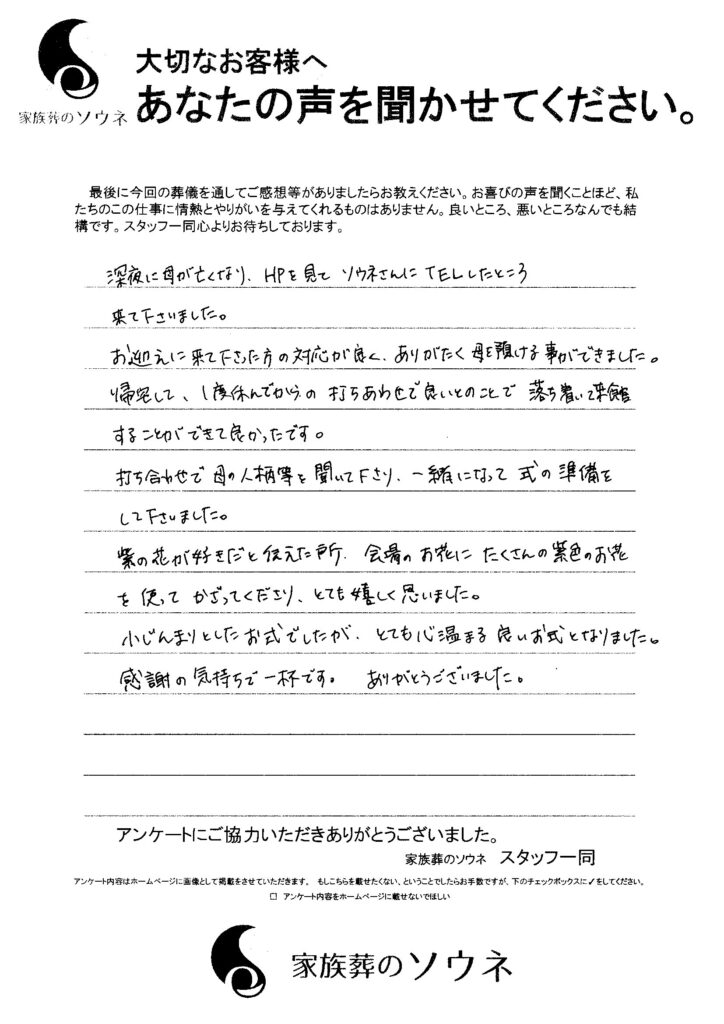 大切なお客様へ
家族葬のソウネ
あなたの声を聞かせてください。
最後に今回の葬儀を通してご感想等がありましたらお教えください。お喜びの声を聞くことほど、私
たちのこの仕事に情熱とやりがいを与えてくれるものはありません。良いところ、悪いところなんでも結
構です。スタッフ一同心よりお待ちしております。
深夜に母が亡くなり、HPを見て ソウネさんに TELしたところ
来て下さいました。
お迎えに来て下さった方の対応が良く、ありがたく母を預ける事ができました。
帰宅して、1度休んでからの 打ちあわせで良いとのことで 落ち着いて来館
することができて良かったです。
打ち合わせで 母の人柄等を聞いて下さり、一緒になって 式の準備を
して下さいました。
紫の花が好きだと伝えた所、会場のお花に たくさんの紫色のお花
を使って かざってくださり、とても嬉しく思いました。
小じんまりとしたお式でしたが、とても心温まる良いお式となりました。
感謝の気持ちで一杯です。 ありがとうございました。
アンケートにご協力いただきありがとうございました。
家族葬のソウネ スタッフ一同
アンケート内容はホームページに画像として掲載をさせていただきます。 もしこちらを載せたくない、ということでしたらお手数ですが、下のチェックボックスに✓をしてください。
□ アンケート内容をホームページに載せないでほしい
家族葬のソウネ